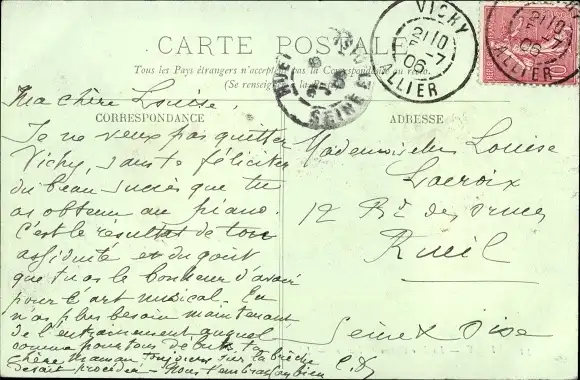 CARTE POSTALE
Tous les Pays étrangers n'acceptent pas la Correspondance au recto.
(Se renseigner à la Poste)
CORRESPONDANCE
ADRESSE
VICHY
21/10
5-7
06
ALLIER
RUEIL
SEINE
Ma chère Louise,
Je ne veux pas quitter
Vichy, sans te féliciter
du beau succès que tu
as obtenu au piano.
C'est le résultat de ton
assiduité et du goût
que tu as le bonheur d'avoir
pour l'art musical. Tu
n'as plus besoin maintenant
de l'entraînement auquel
comme pour tous débuts ta
chère maman toujours sur la brèche
devait procéder - Nous t'embrassons bien
C.D
Mademoiselle Louise
Lacroix
12 Bd des Ormes
Rueil
Seine & Oise